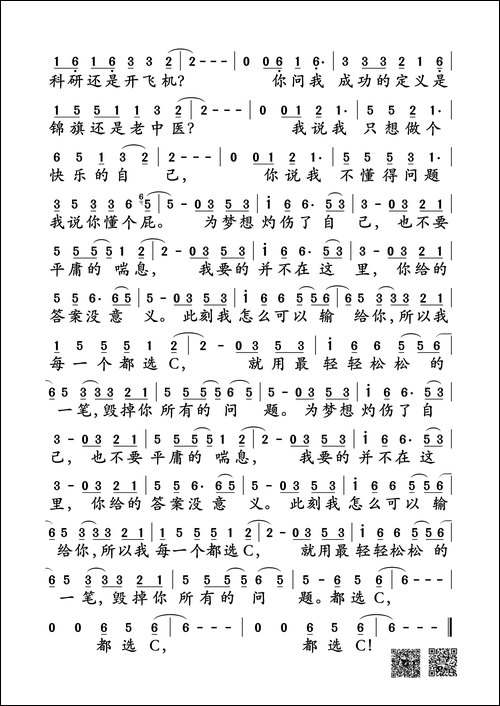 1 6 1 6 3 3 2 | 2 - - - | 0 0 0 6 1 6· | 3 3 3 2 1 6 |
科研还是开飞机? 你问我 成功的定义是
1 5 5 1 1 3 2 | 2 - - - | 0 0 0 1 2 1· | 5 5 2 1 |
锦旗还是老中医? 我说我 只想做个
6 5 1 3 2 | 2 - - - | 0 0 0 1 2 1· | 5 5 5 3 |
快乐的自 己, 你说我 不懂得问题
3 5 3 3 6 5 | 5· - 0 3 5 3 | i 6 6· 5 3 | 3 - 0 3 2 1 |
我说你懂个屁。 为梦想 灼伤了自 己, 也不要
5 5 5 5 1 2 | 2 - 0 3 5 3 | i 6 6· 5 3 | 3 - 0 3 2 1 |
平庸的 喘息, 我要的 并不在这 里, 你给的
5 5 6· 6 5 | 5 - 0 3 5 3 | i 6 6 5 5 6 | 6 5 3 3 3 2 1 |
答案没意 义。此刻我怎么可以 输 给你,所以我
1 5 5 5 1 2 | 2 - 0 3 5 3 | i 6 6 6 5 5 6 |
每一个都选C, 就用最 轻轻松松 的
6 5 3 3 3 2 1 | 5 5 5 5 6 5 | 5 - 0 3 5 3 | i 6 6· 5 3 |
一笔,毁掉你 所有的 问 题。为梦想 灼伤了自
3 - 0 3 2 1 | 5 5 5 5 1 2 | 2 - 0 3 5 3 | i 6 6· 5 3 |
己, 也不要 平庸的 喘息, 我要的 并不在这
3 - 0 3 2 1 | 5 5 6· 6 5 | 5 - 0 3 5 3 | i 6 6 5 5 6 |
里, 你给的 答案没意 义。此刻我怎么可以 输
6 5 3 3 3 2 1 | 1 5 5 5 1 2 | 2 - 0 3 5 3 | i 6 6 6 5 5 6 |
给你,所以我 每一个都选C, 就用最 轻轻松松的
6 5 3 3 3 2 1 | 5 5 5 5 6 6 5 | 5 5 6 5 6 | 6 - - - |
一笔,毁掉你 所有的 问 题。都选C,
0 0 6 5 6 | 6 - - - | 0 0 6 5 6 | 6 - - - ‖
都选C, 都选C!